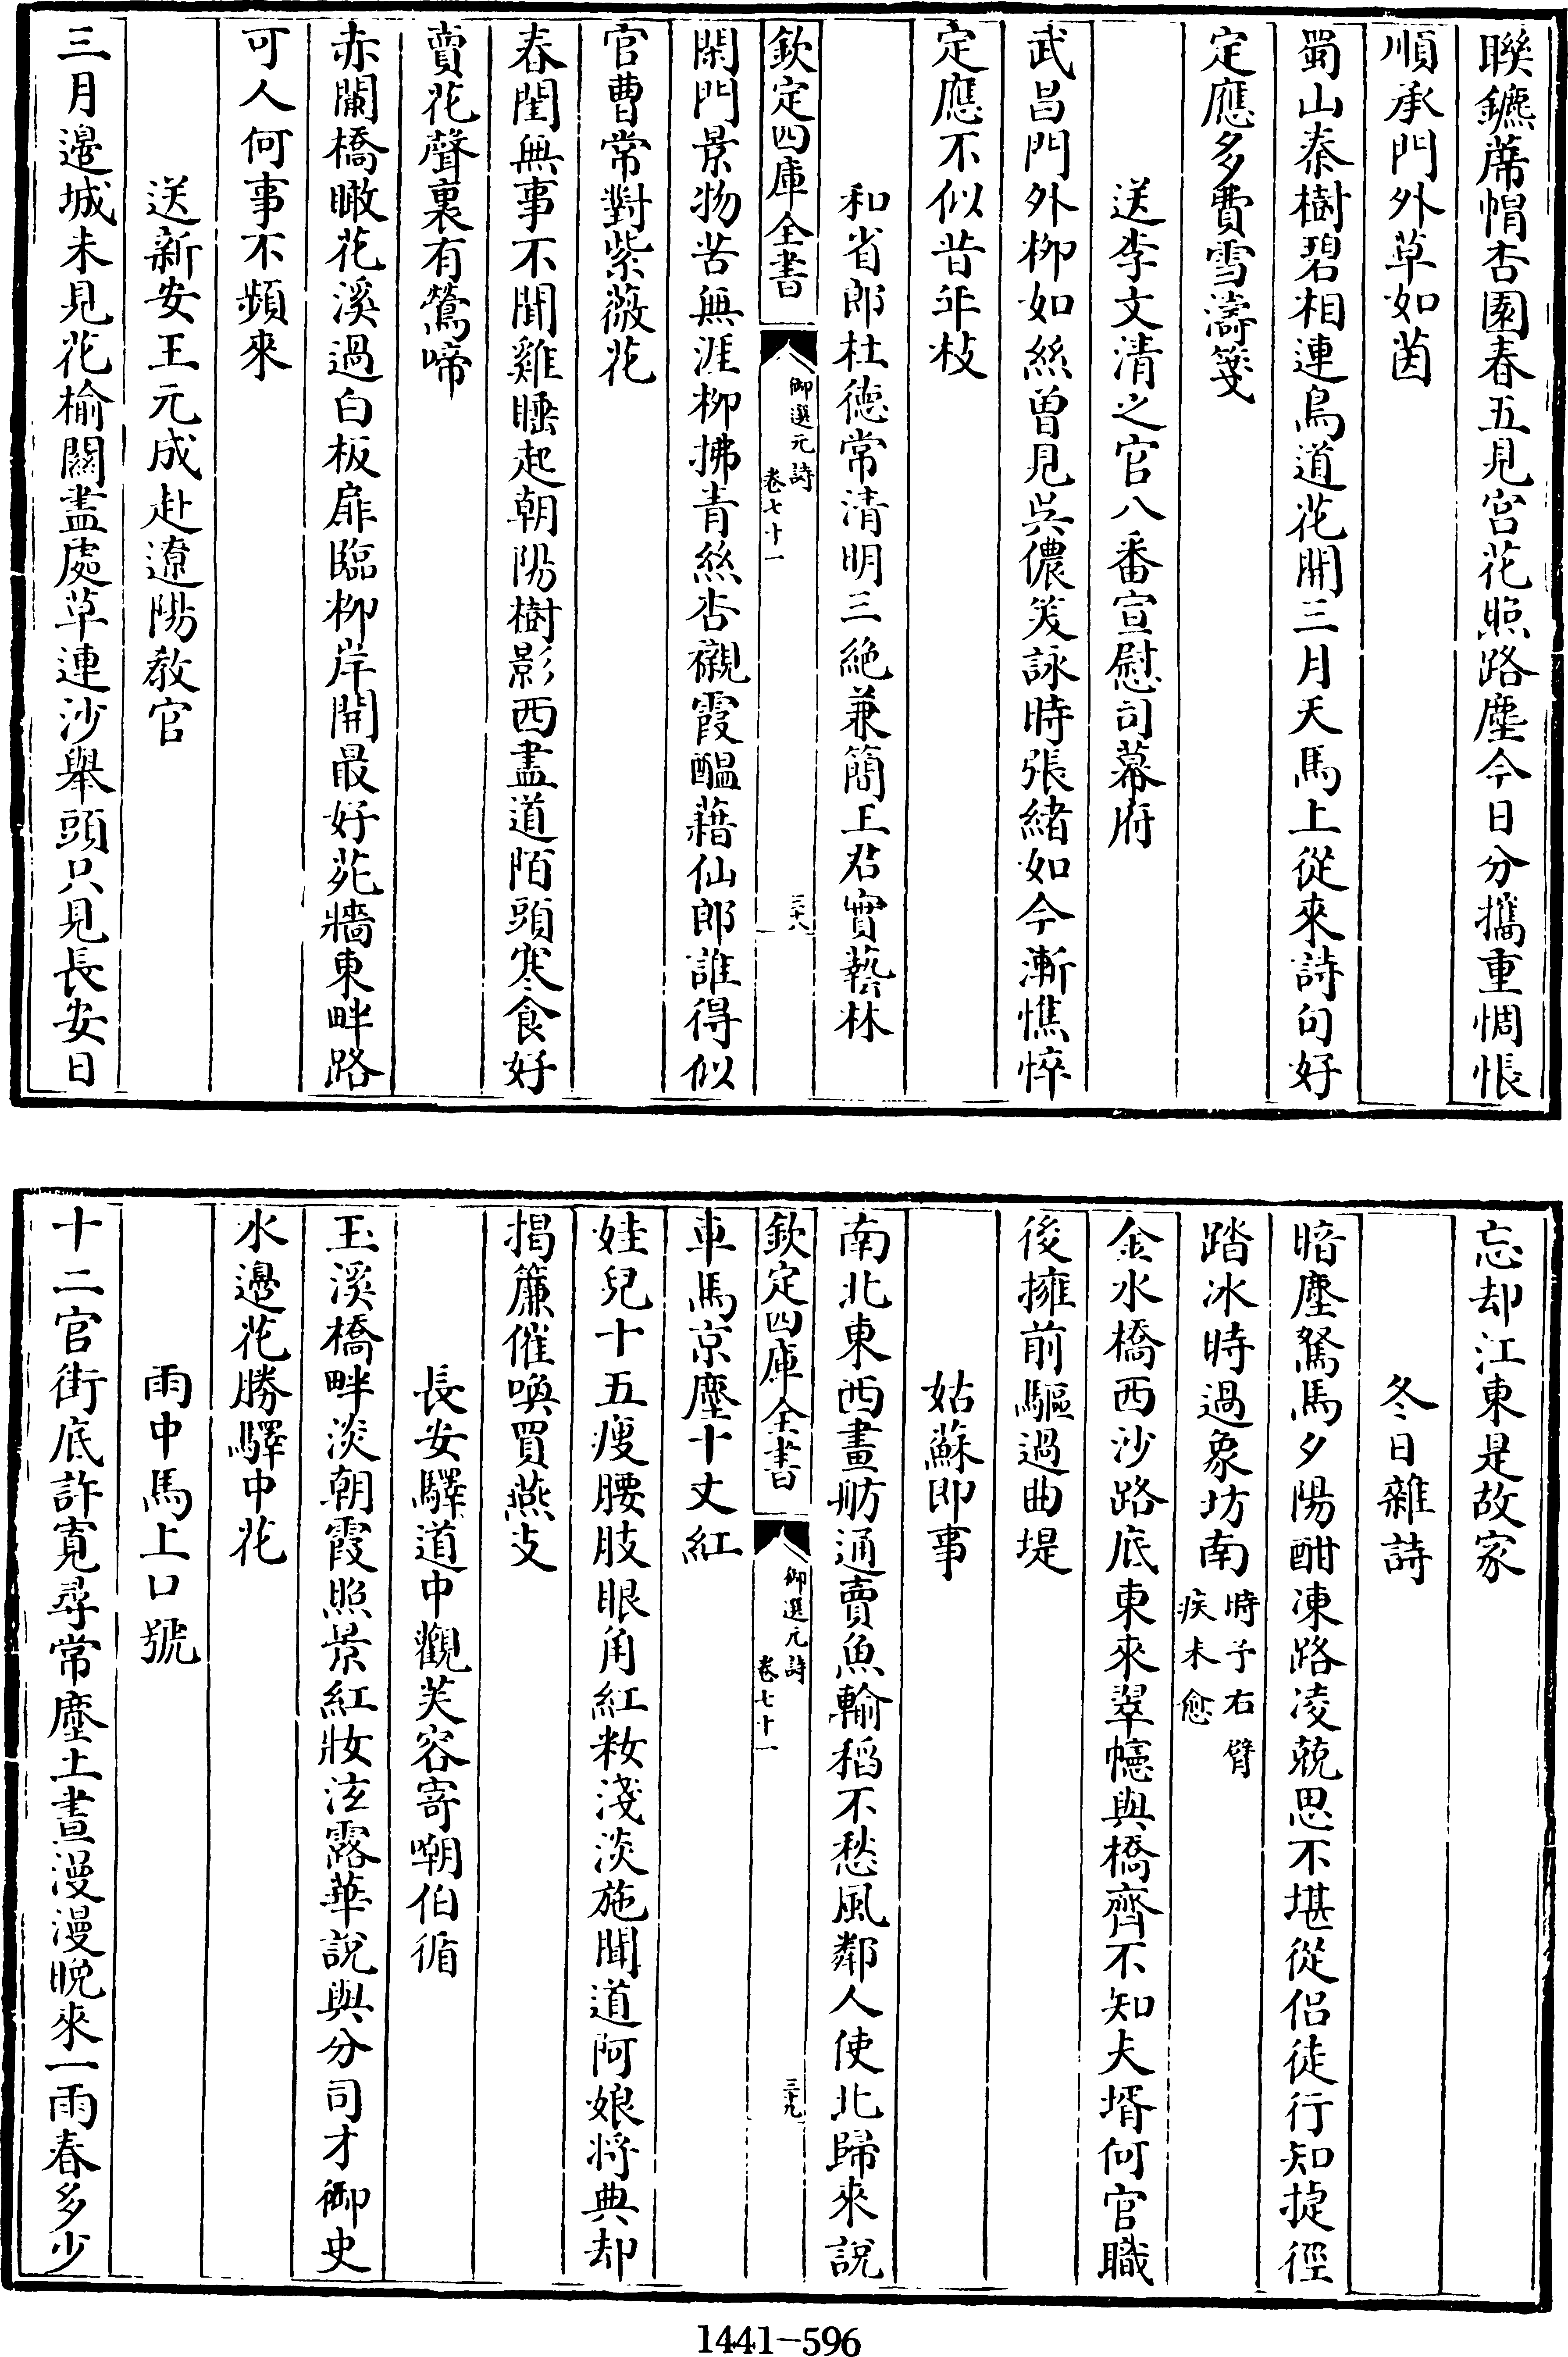 聨鑣蓆帽杏園春五見宮花照路塵今日分攜重惆悵
順承門外草如茵
蜀山秦樹碧相連鳥道花開三月天馬上從來詩句好
定應多費雪濤箋
送李文清之官八番宣慰司幕府
武昌門外柳如絲曾見吳儂笑詠時張緒如今漸憔悴
定應不似昔年枝
和省郎杜德常清明三絶兼簡王君實藝林
欽定四庫全書
御選元詩
卷七十一
三十八
閑門景物苦無涯柳拂青絲杏襯霞醖藉仙郎誰得似
官曹常對紫薇花
春閨無事不聞雞睡起朝陽樹影西盡道陌頭寒食好
賣花聲裏有鶯啼
赤闌橋瞰花溪過白板扉臨柳岸開最好苑牆東畔路
可人何事不頻來
送新安王元成赴遼陽教官
三月邊城未見花榆關盡處草連沙舉頭只見長安日
忘却江東是故家
冬日雜詩
暗塵駑馬夕陽酣凍路凌兢思不堪從侶徒行知捷徑
踏冰時過象坊南時予右臂疾未愈
金水橋西沙路底東來翠幰與橋齊不知夫壻何官職
後擁前驅過曲堤
姑蘇即事
南北東西畫舫通賣魚輸稻不愁風鄰人使北歸來說
欽定四庫全書
御選元詩
卷七十一
三十九
車馬京塵十丈紅
娃兒十五瘦腰肢眼角紅籹淺淡施聞道阿娘將典却
揭簾催喚買燕支
長安驛道中觀芙容寄嘲伯循
玉溪橋畔淡朝霞照景紅妝泫露華說與分司才御史
水邊花勝驛中花
雨中馬上口號
十二官街底許寛尋常塵土晝漫漫晚來一雨春多少
1441-596